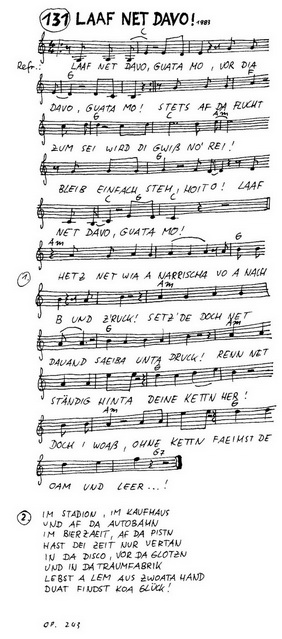 131 LAAF NET DAVO! 1983
C
Refr.: LAAF NET DAVO, GUATA MO, VOR DIA
G F
DAVO, GUATA MO! STETS AF DA FLUCHT
G C Am
ZUM SEI WIRD DI GWIß NO' REI!
G
BLEIB EINFACH STEH, HOITO! LAAF
C G C
NET DAVO, GUATA MO!
Am G
1. HETZ NET WIA A NARRISCHA VO A NACH
Am
B UND Z'RUCK! SETZ'DE DOCH NET
G Am
DAUAND SAEIBA UNTA DRUCK! RENN NET
G
STÄNDIG HINTA DEINE KETTN HER!
Am G
DOCH I WOAß, OHNE KETTN FAEIHST DE
Am G7
OAM UND LEER...!
2. IM STADION, IM KAUFHAUS
UND AF DA AUTOBAHN
IM BIERZAEIT, AF DA PISTN
HAST DEI ZEIT NUR VERTAN
IN DA DISCO, VOR DA GLOTZN
UND IN DA TRAUMFABRIK
LEBST A LEM AUS ZWOATA HAND
DUAT FINDST KOA GLÜCK!
OP. 243